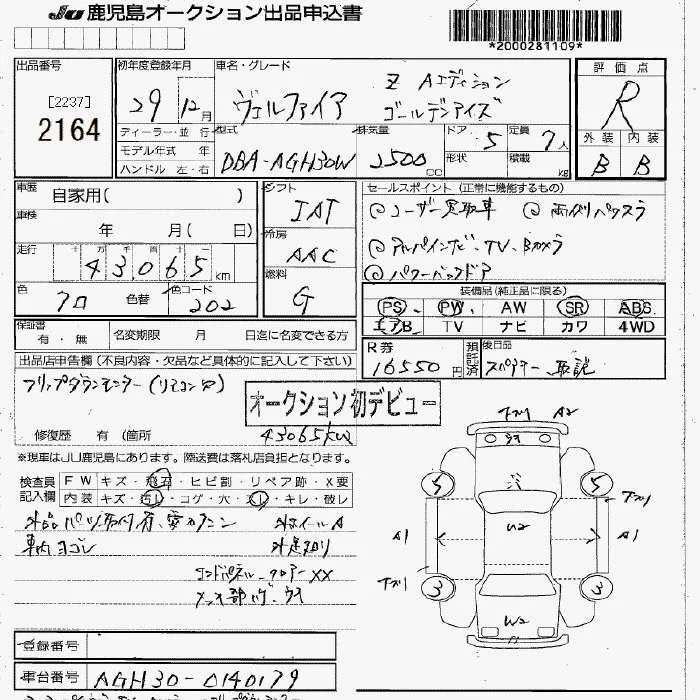 JU 鹿児島オークション出品申込書
*2000281109*
出品番号
[2237]
2164
初年度登録年月
29 12月
ディーラー・並 行
モデル年式 年
ハンドル 左・右
車名・グレード
Z Aエディション
ヴェルファイア ゴールデンアイズ
型式
DBA-AGH30W
排気量
2500 CC
ドア 5
形状
定員 7人
積載 kg
評価点
R
外装 内装
B B
車歴 自家用( )
車検 年 月( 日)
走行 十 万 千 百 十 一
43,065 km
色 クロ 色替
色コード 202
シフト
IAT
冷房
AAC
燃料
G
セールスポイント (正常に機能するもの)
◎ユーザー買取車 ◎両側パワスラ
◎アルパインナビ、TV、Bカメラ
◎パワーバックドア
装備品(純正品に限る)
PS PW AW SR ABS
エアB TV ナビ カワ 4WD
保証書 有・無
名変期限 月 日迄に名変できる方
R券
16550円
預託済
後日品
スペアキー、取説
出品店申告欄 (不良内容・欠品など具体的に記入して下さい)
フリップダウンモニター(リモコン欠)
オークション初デビュー
修復歴 有 (箇所 43065km
※現車はJU鹿児島にあります。陸送費は落札店負担となります。
検査員記入欄
FW キズ・飛石・ヒビ割・リペア跡・X要
内装 キズ・汚レ・コゲ・穴・スレ・キレ・破レ
外品パーツ取付有、
ホイールA
車内ヨゴレ
コンドパネル、クロアーXX
登録番号
車台番号 AGH30-0140179
ナオリ A2
ウス
5 5
ナオリ
A1 A1
W2
ナオリ
3 3
W2